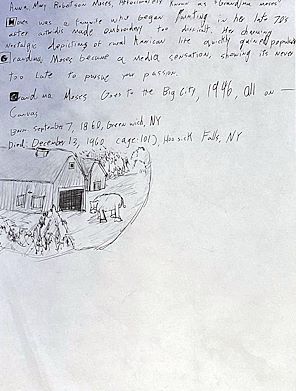 Anna Mary Robertson Moses, Affectionately known as "Grandma Moses"
Moses was a farmwife who began painting in her late 70s
after arthritis made embroidery too difficult. Her charming
Nostalgic depictions of rural American life quickly gained popularity
Grandma Moses become a media sensation, showing its never
too late to pursue your passion.
Grandma Moses Goes to the Big City, 1946, oil on
Canvas
Born September 7, 1860, Greenwich, NY
Died: December 13, 1960 (age: 101), Hoosick Falls, NY